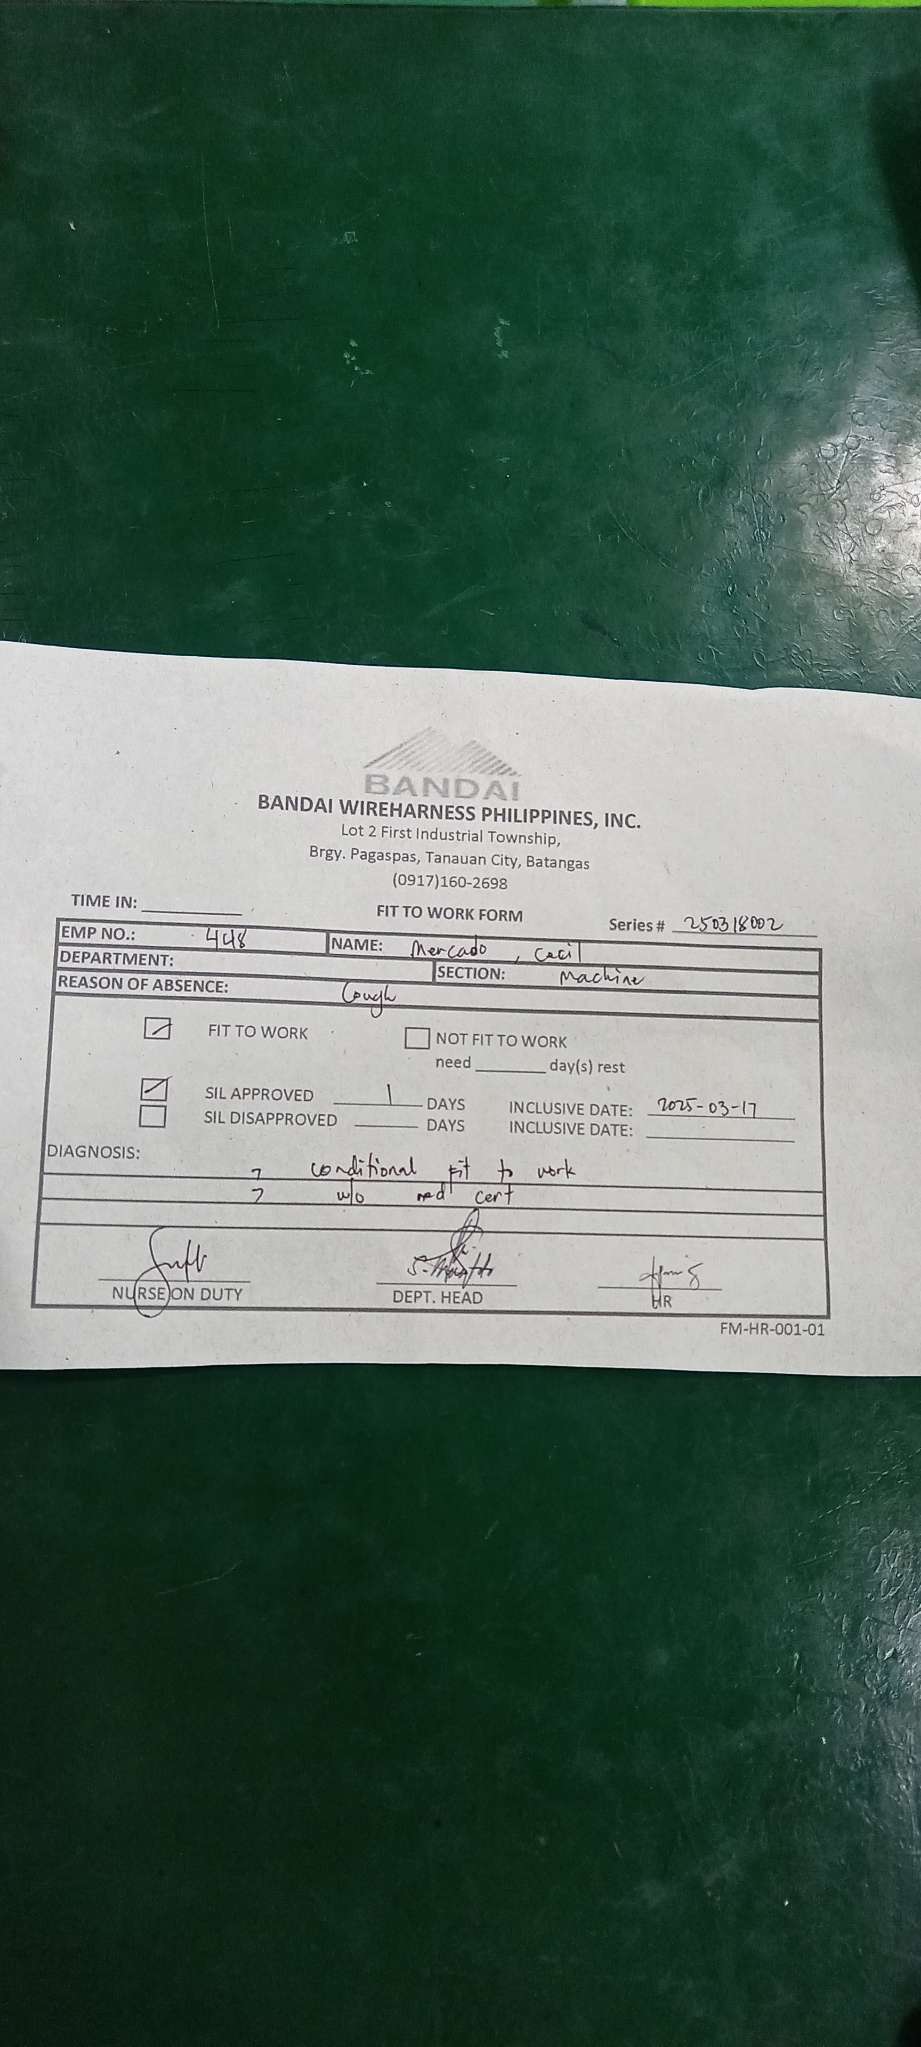 BANDAI
BANDAI WIREHARNESS PHILIPPINES, INC.
Lot 2 First Industrial Township,
Brgy. Pagaspas, Tanauan City, Batangas
(0917)160-2698
TIME IN:
FIT TO WORK FORM
Series # 250318002
EMP NO.: 448 NAME: Mercado, Cecil
DEPARTMENT: SECTION: Machine
REASON OF ABSENCE: Cough
FIT TO WORK NOT FIT TO WORK
need day(s) rest
SIL APPROVED 1 DAYS INCLUSIVE DATE: 2025-03-17
SIL DISAPPROVED DAYS INCLUSIVE DATE:
DIAGNOSIS:
conditional fit to work
w/o med cert
NURSE ON DUTY DEPT. HEAD HR
FM-HR-001-01